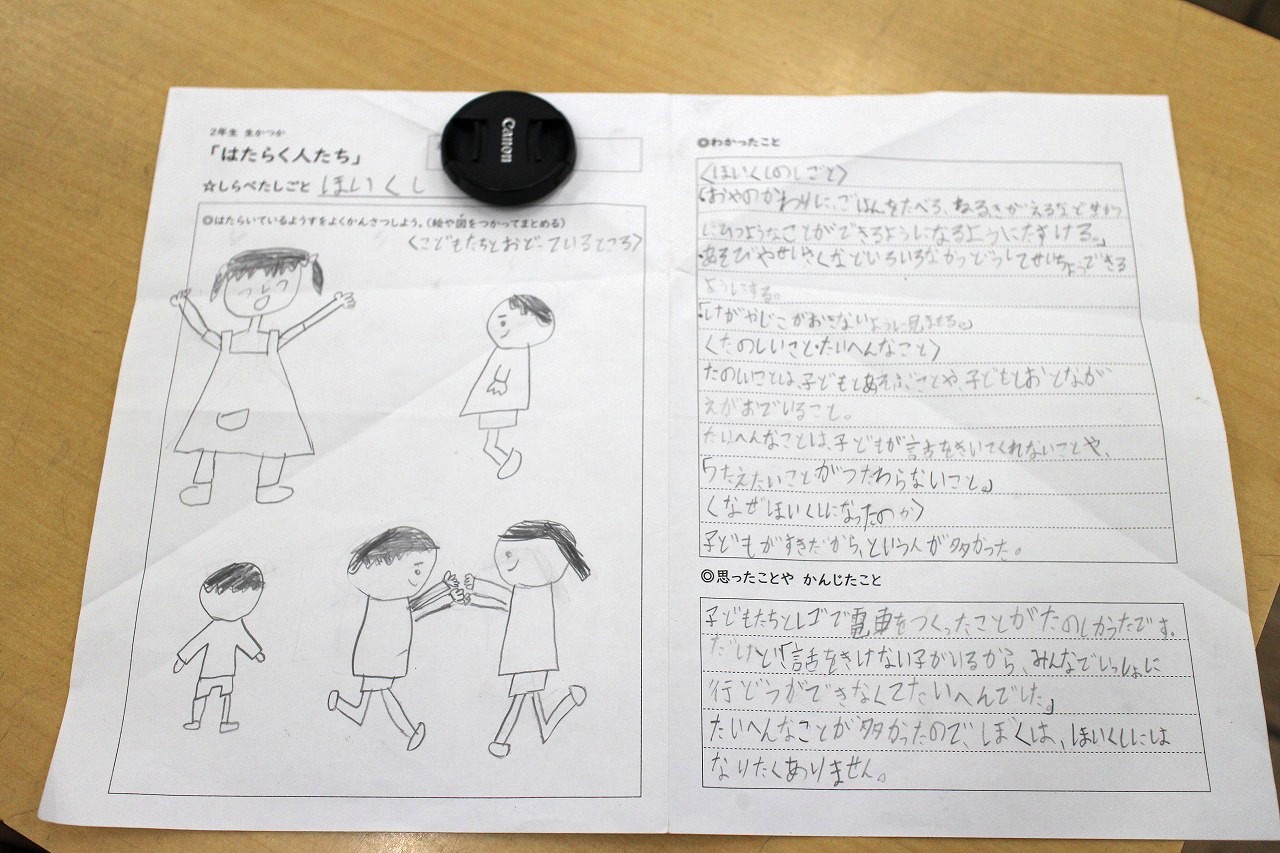 2年生 生かつか
「はたらく人たち」
☆しらべたしごと ほいくし
Canon
◎はたらいているようすをよくかんさつしよう。(絵や図をつかってまとめる)
〈こどもたちとおどっているところ〉
◎わかったこと
〈ほいくしのしごと〉
「おやのかわりに、ごはんをたべる、ねる、きがえるなど
にひつようなことができるようになるようにたすける。」
・あそびやせいさくなどいろいろなかつどうしてせいちょうできる
ようにする。
「けがやじこがおきないように見まもる。」
〈たのしいこと・たいへんなこと〉
たのしいことは、子どもとあそぶことや、子どもとおとなが
えがおでいること。
たいへんなことは、子どもが話をきいてくれないことや、
「つたえたいことがつたわらないこと。」
〈なぜほいくしになったのか〉
子どもがすきだから、という人が多かった。
◎思ったことや かんじたこと
子どもたちとレゴで電車をつくったことがたのしかったです。
だけど「話をきけない子がいるから、みんなでいっしょに
行どうができなくてたいへんでした。」
たいへんなことが多かったので、ぼくは、ほいくしには
なりたくありません。